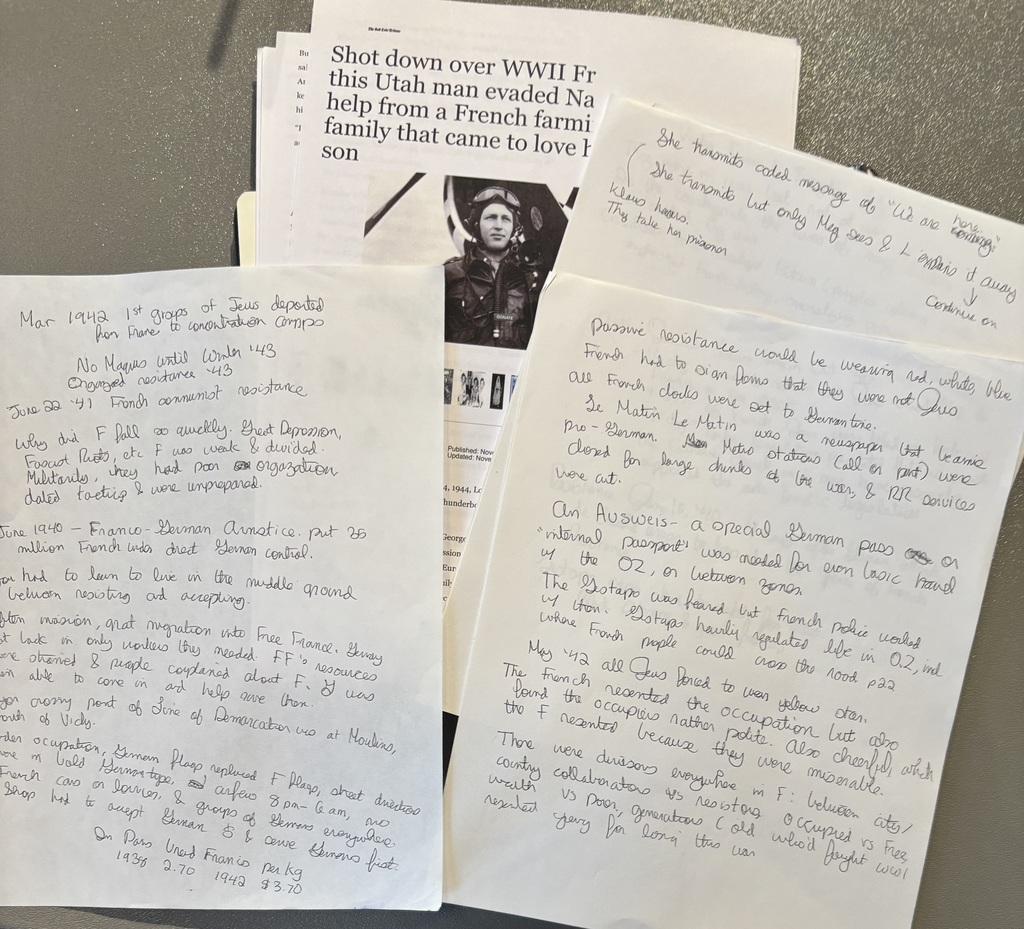 The Salt Lake Tribune
Shot down over WWII Fr
this Utah man evaded Na
help from a French farmi
family that came to love h
son
Published: Nov
Updated: Nove
4, 1944, Lc
hunderbo
George
ssion
Eur
She transmits coded message of "We are here."
She transmits but only Meg sees & L explains it away
Klaus hears.
They take her prisoner
Continue on
Mar 1942 1st groups of Jews deported
from France to concentration camps
No Maquis until Winter '43
Engaged resistance '43
June 22 '41 French communist resistance
Why did F fall so quickly. Great Depression,
Fascist Riots, etc F was weak & divided.
Militarily, they had poor orgozation
dated tactics & were unprepared.
June 1940 - Franco-German Armstice. put 25
million French under direct German control.
had to learn to live in the middle ground
between resisting and accepting.
invasion, great migration into Free France.
back in only workers they needed. FF's resources
strained & people complained about F. was
able to come in and help save them.
crossing point of Line of Demarcation was at Moulins,
of Vichy.
occupation, German flags replaced F flags, street directions
in bold German type, curfew 8pm-6am, no
French cars or lorries, & groups of Germans everywhere.
Shop had to accept German $ & serve Germans first.
In Paris bread Francs per kg
1938 2.70 1942 $3.70
Passive resistance would be wearing red, white, blue
French had to sign forms that they were not Jews
all French clocks were set to German time.
Le Matin Le Matin was a newspaper that became
pro-German. Metro stations (all or part) were
closed for large chunks of the war, & RR services
were cut.
An Ausweis - a special German pass or
"internal passport" was needed for even basic travel
w/ the OZ, or between zones.
The Gstapo was feared but French police worked
w/ them. Gstapo heavily regulated life in O.Z, incl
where French people could cross the road p22
May '42 all Jews forced to wear yellow star.
The French resented the occupation but also
found the occupiers rather polite. Also cheerful, which
the F resented because they were miserable.
There were divisions everywhere in F: between city/
country collaborators vs resistors, occupied vs Free,
wealth vs poor, generations (old who'd fought WWI
resented for long this war